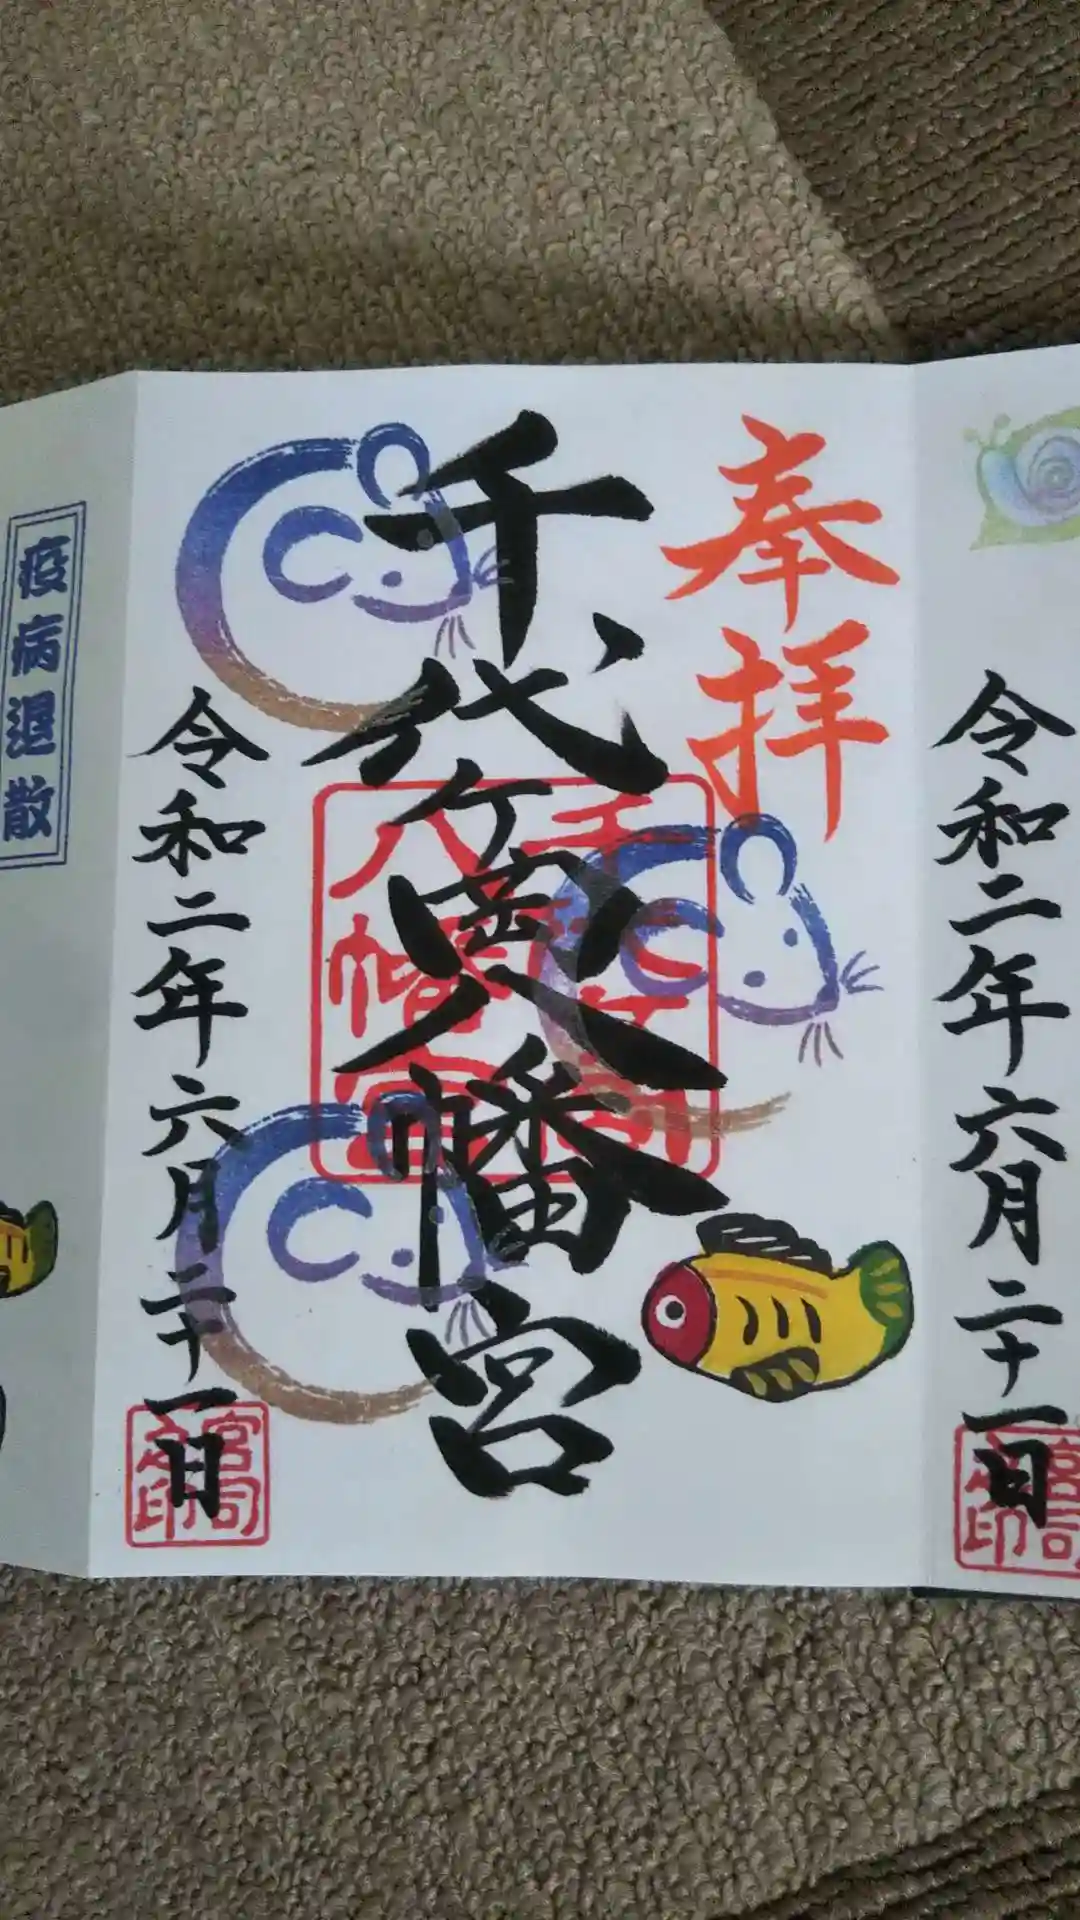 令和二年六月二十一日
宮司之印
奉拝
千代ヶ岡八幡宮
八幡宮
令和二年六月二十一日
宮司之印
疫病退散